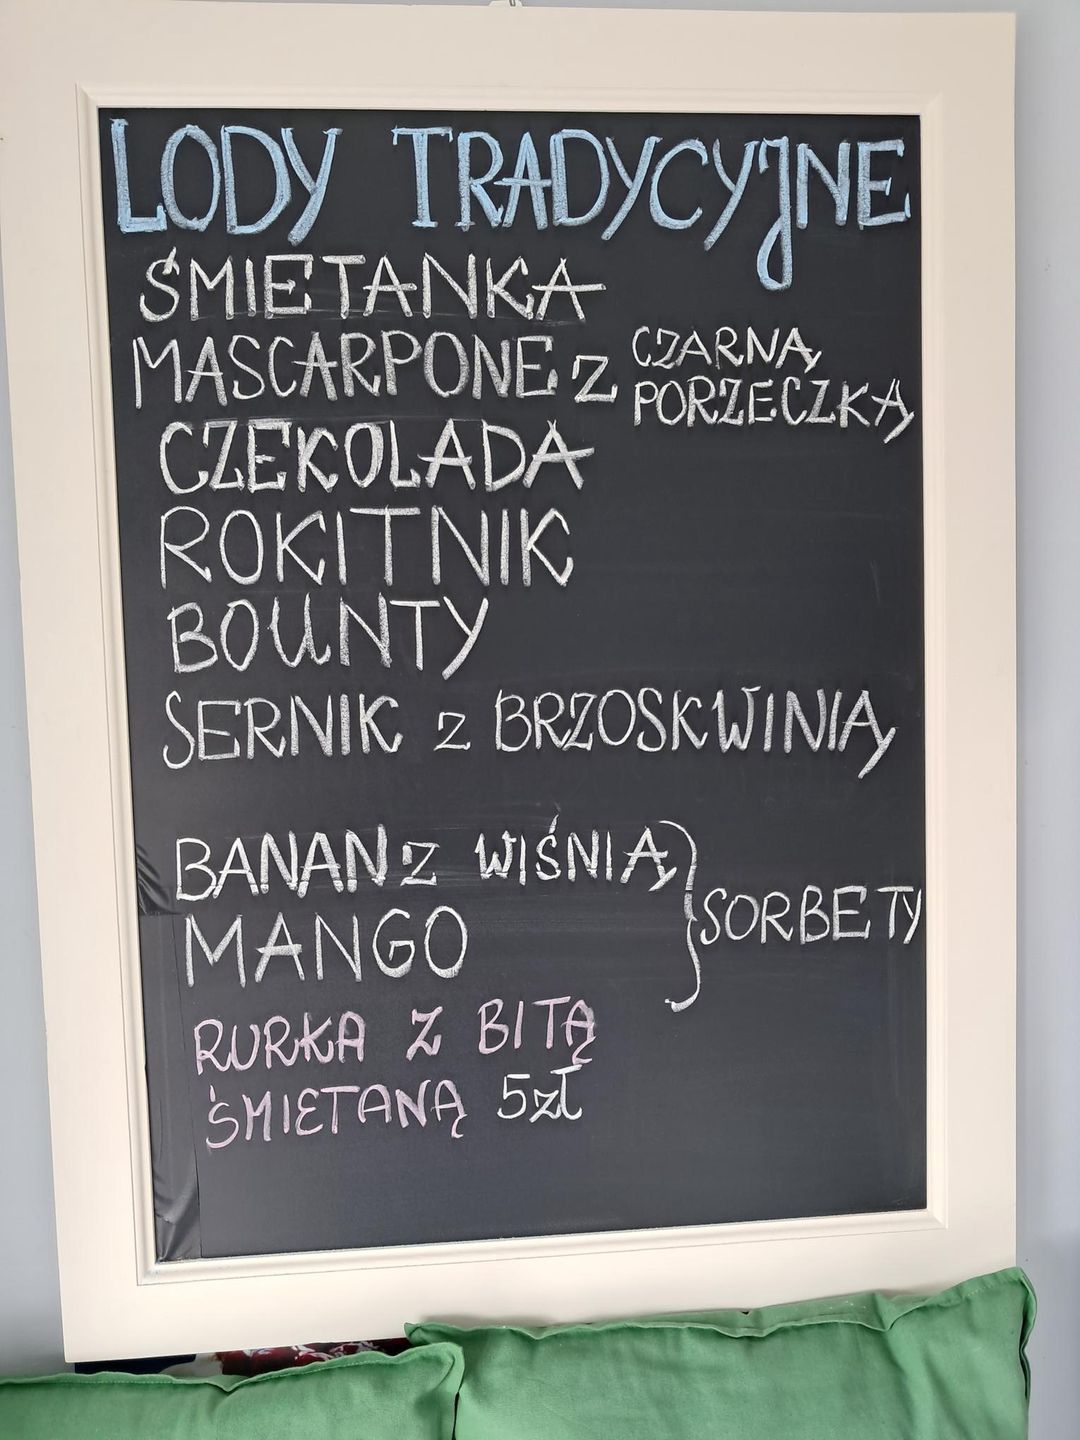 LODY TRADYCYJNE
ŚMIETANKA
MASCARPONE Z CZARNĄ
PORZECZKĄ
CZEKOLADA
ROKITNIK
BOUNTY
SERNIK Z BRZOSKWINIĄ
BANAN Z WIŚNIĄ
MANGO
SORBETY
RURKA Z BITĄ
ŚMIETANĄ 5zł